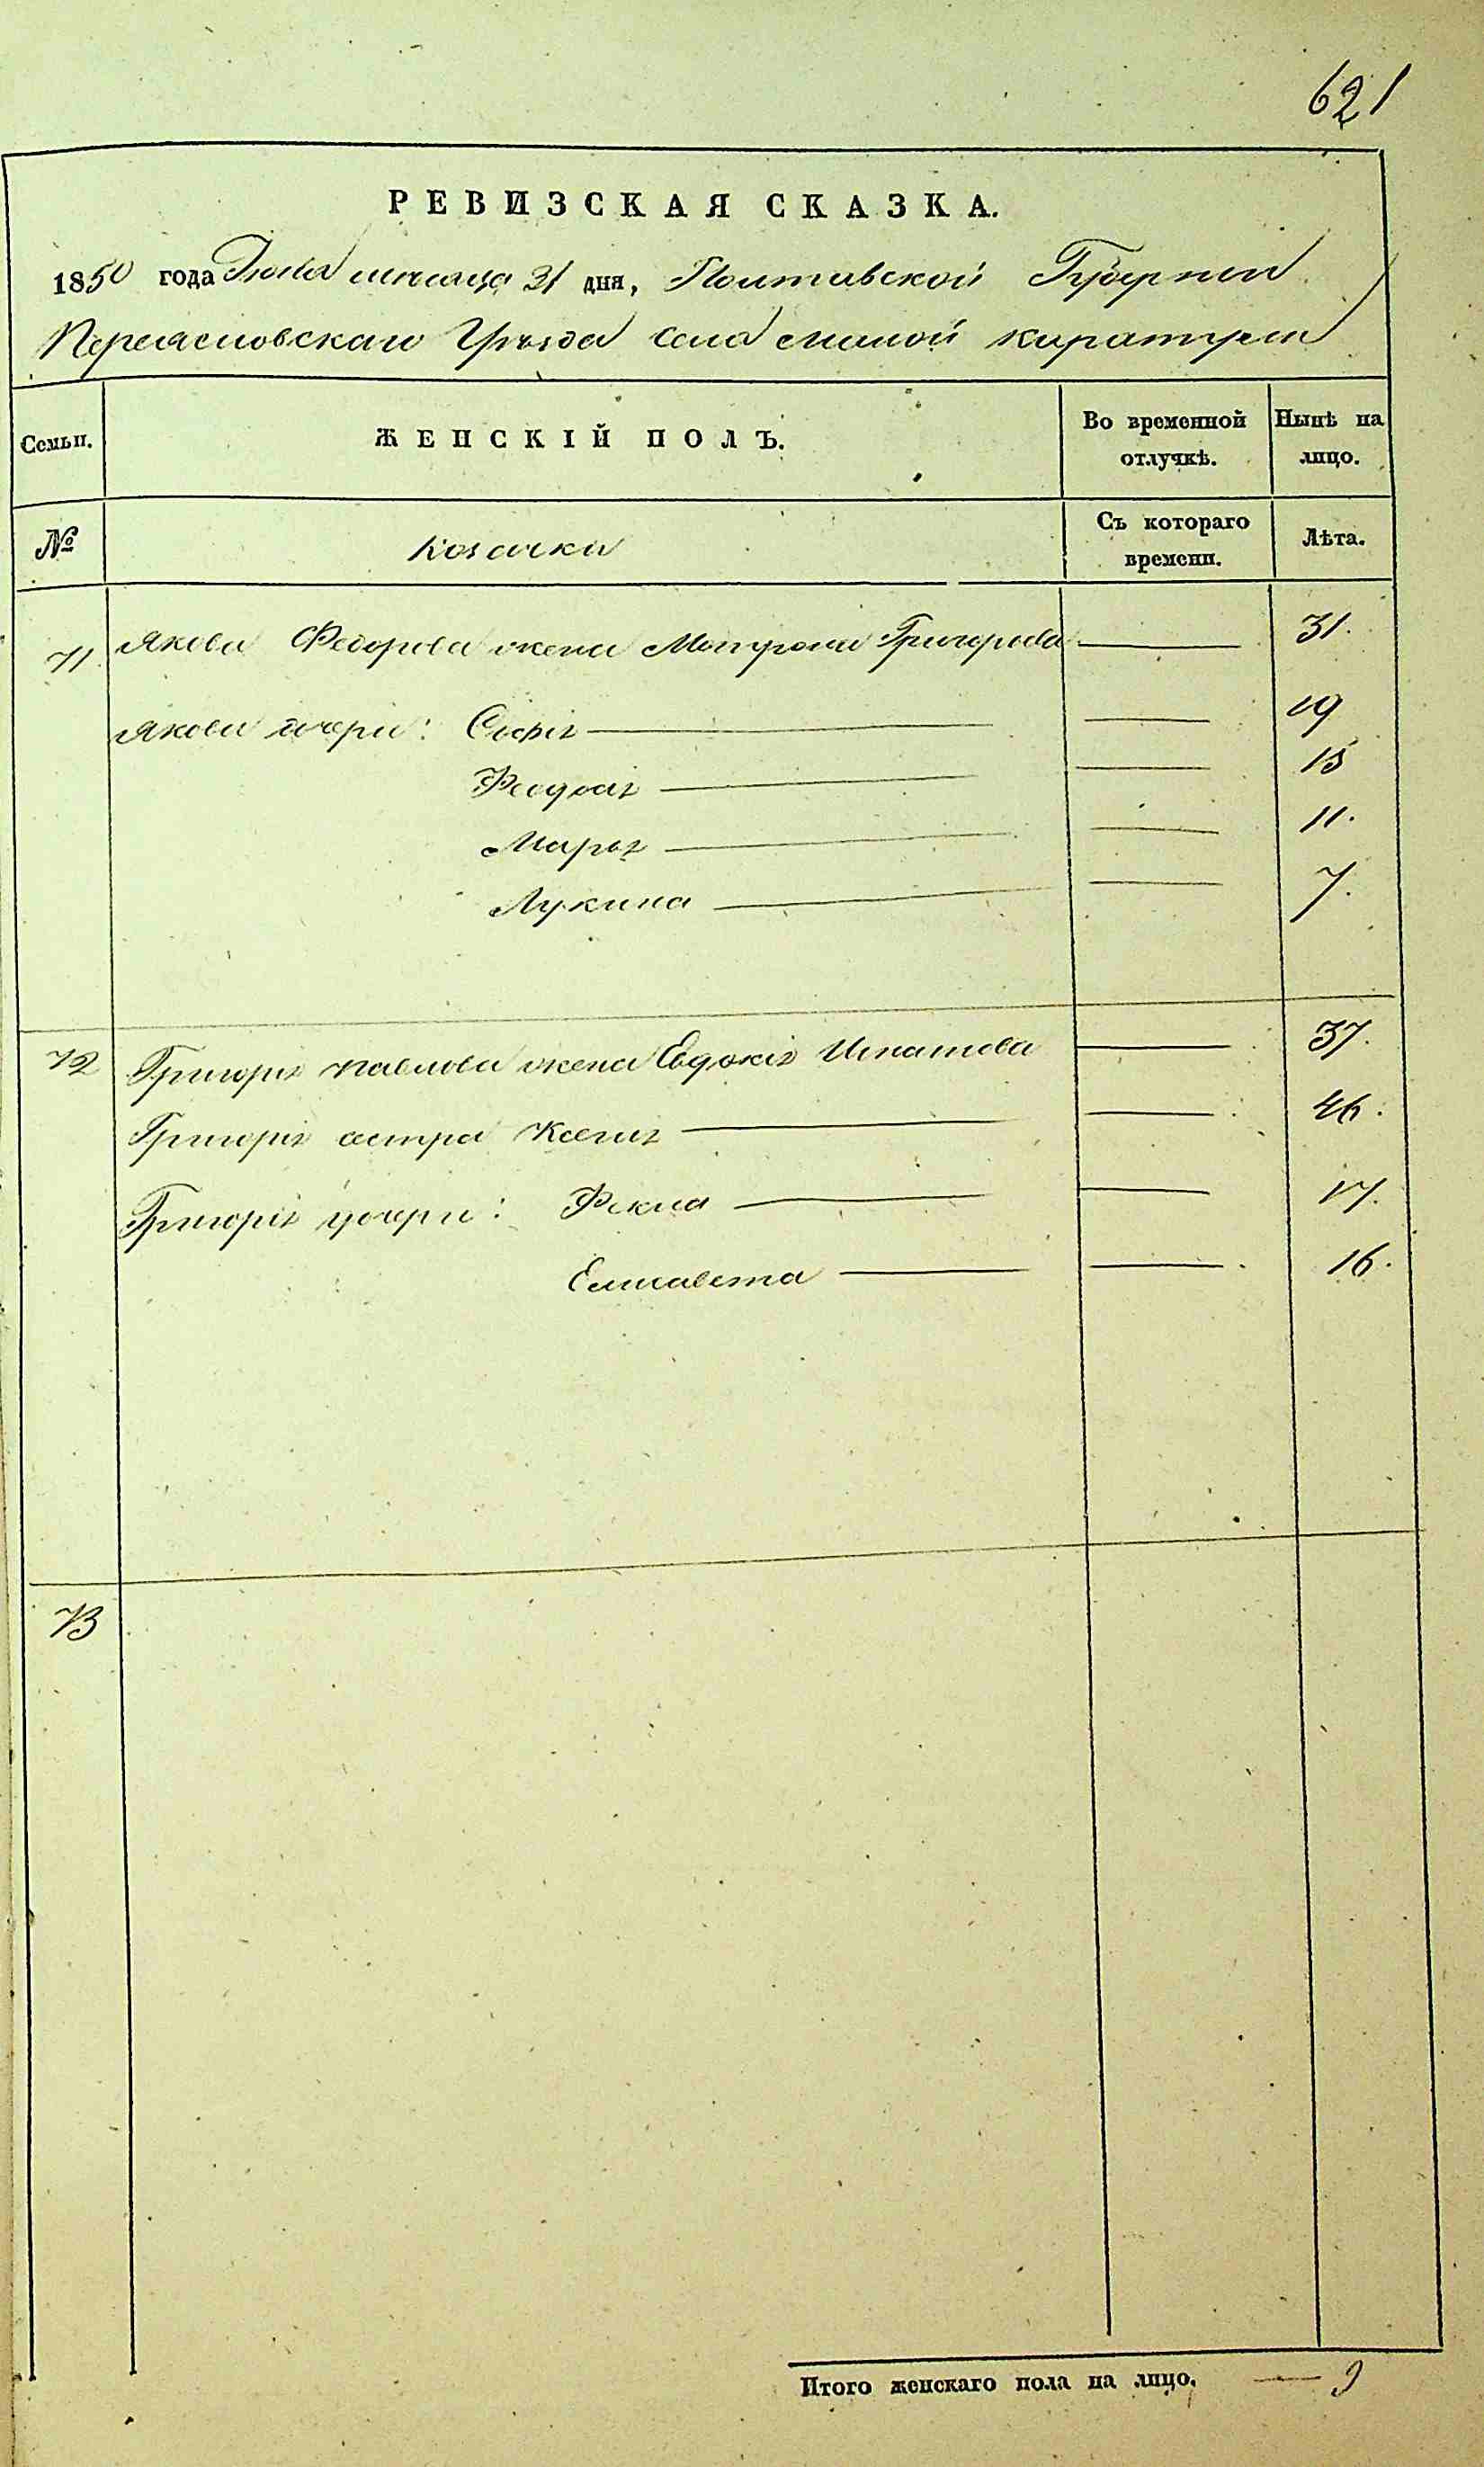 621
РЕВИЗСКАЯ СКАЗКА.
1850 года Июля месяца 31 дня, Полтавской Губернии
Переясловскаго Уѣзда Села малой каратули
Семьи. ЖЕНСКІЙ ПОЛЪ. Во временной отлучкѣ. Нынѣ на лицо.
№ Козачки Съ котораго времени. Лѣта.
71. Якова Федорова жена Мотрона Григорова — 31.
Якова дочери: Софія — — 19
Феодосія — — 15
Марья — — 11.
Лукина — — 7.
72 Григорія Павлова жена Евдокія Игнатова — 37.
Григорія сестра Ксенія — — 46.
Григорія дочери: Фекла — — 17.
Елисавета — — 16.
73
Итого женскаго пола на лицо. — 9